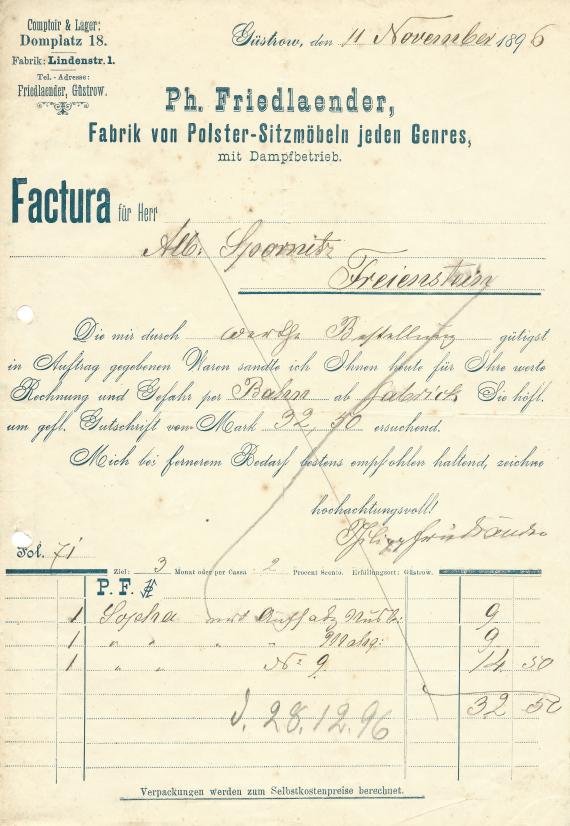 Comptoir & Lager:
Domplatz 18.
Fabrik: Lindenstr. 1.
Tel.-Adresse:
Friedlaender, Güstrow.
Güstrow, den 11 November 1896
Ph. Friedlaender,
Fabrik von Polster-Sitzmöbeln jeden Genres,
mit Dampfbetrieb.
Factura für Herr
Alb. Spornitz
Freienstein
Die mir durch werthe Bestellung gütigst
in Auftrag gegebenen Waren sandte ich Ihnen heute für Ihre werte
Rechnung und Gefahr per Bahn ab Fabrick Sie höfl.
um gefl. Gutschrift von Mark 32,50 ersuchend.
Mich bei fernerem Bedarf bestens empfohlen haltend, zeichne
hochachtungsvoll!
Philipp Friedländer
Fol. 71
Ziel: 3 Monat oder per Cassa 2 Procent Sconto. Erfüllungsort: Güstrow.
P. F.
1 Sopha mit Aufsatz Nussb: 9
1 " " " Mahg: 9
1 " " No 9. 14 50
32 50
d. 28.12.96
Verpackungen werden zum Selbstkostenpreise berechnet.